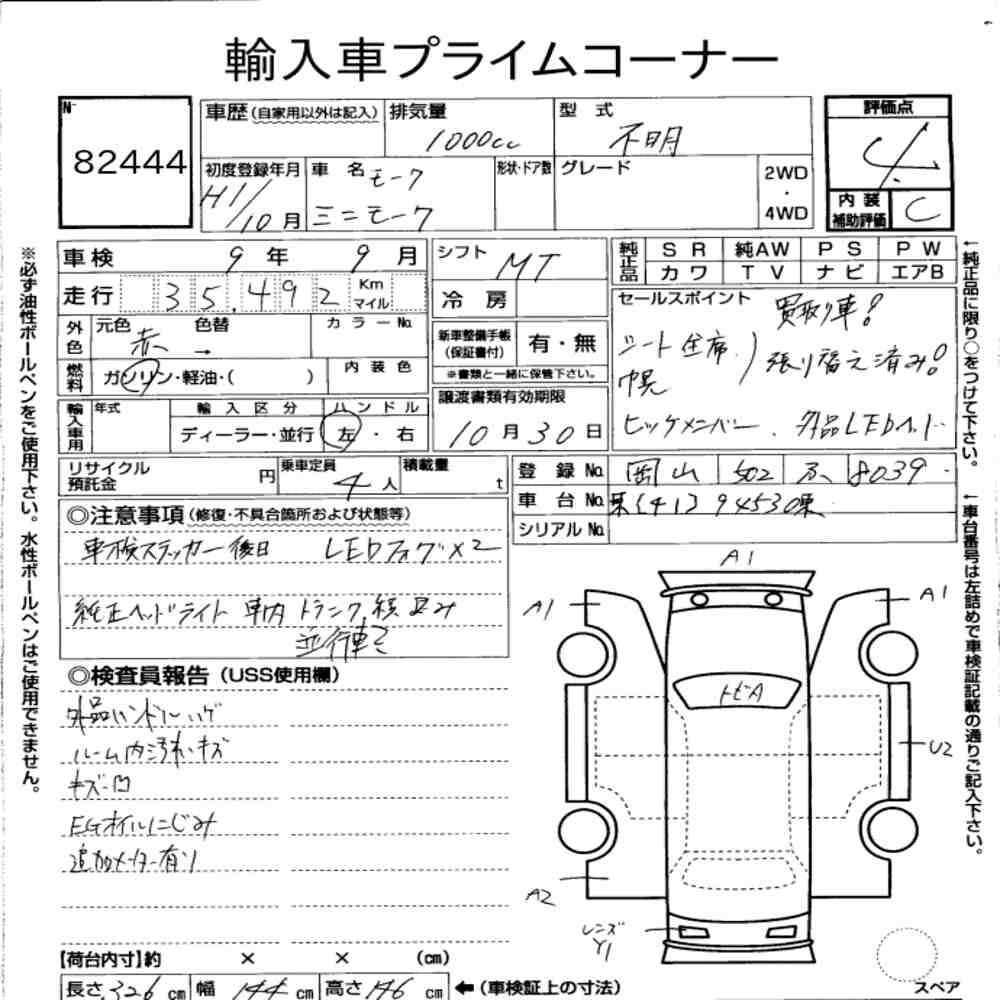 輸入車プライムコーナー
No
82444
車歴(自家用以外は記入) 排気量 1000cc 型式 不明
評価点 4.
初度登録年月 H1/10月 車名 モーク ミニモーク 形状・ドア数 グレード 2WD・4WD
内装補助評価 C
車検 9年 9月 シフト MT
純正品 SR 純AW PS PW
カワ TV ナビ エアB
走行 35,492 Km マイル 冷房
外色 元色 赤 色替 → カラーNo.
セールスポイント 買取り車!
新車整備手帳(保証書付) 有・無
シート全席 ) 張り替え済み!
燃料 ガソリン・軽油・( ) 内装色
※書類と一緒に保管下さい。
幌
輸入車用 年式 輸入区分 ハンドル
ディーラー・並行 左・右
譲渡書類有効期限
10月30日
ヒッチメンバー、外品LEDヘッド
リサイクル預託金 円 乗車定員 4人 積載量 t
登録No. 岡山 502 8039
車台No.
シリアルNo.
◎注意事項(修復・不具合箇所および状態等)
車検ステッカー後日 LEDフォグ×2
純正ヘッドライト 車内トランク積込み
並行車
◎検査員報告(USS使用欄)
外品ハンドル ハゲ
ルーム内汚れ・キズ
キズ・凹
EGオイルにじみ
追加メーター有り
A1
A1
A1
トビA
U2
A2
レンズY1
スペア
【荷台内寸】約 × × (cm)
長さ 326cm 幅 144cm 高さ 146cm ←(車検証上の寸法)
※必ず油性ボールペンをご使用下さい。水性ボールペンはご使用できません。
←純正品に限り○をつけて下さい。
←車台番号は左詰めで車検証記載の通りご記入下さい。